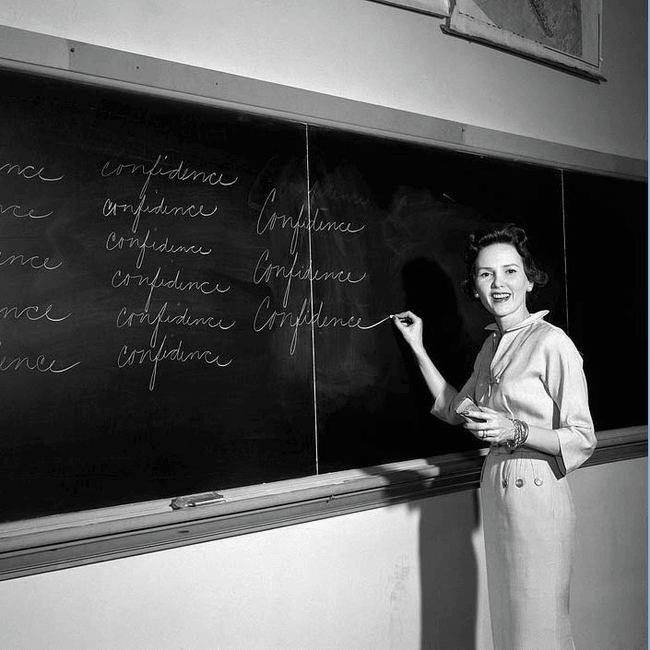 nce
nce
ence
ence
ence
confidence
confidence
confidence
confidence
confidence
confidence
Confidence
Confidence
Confidence